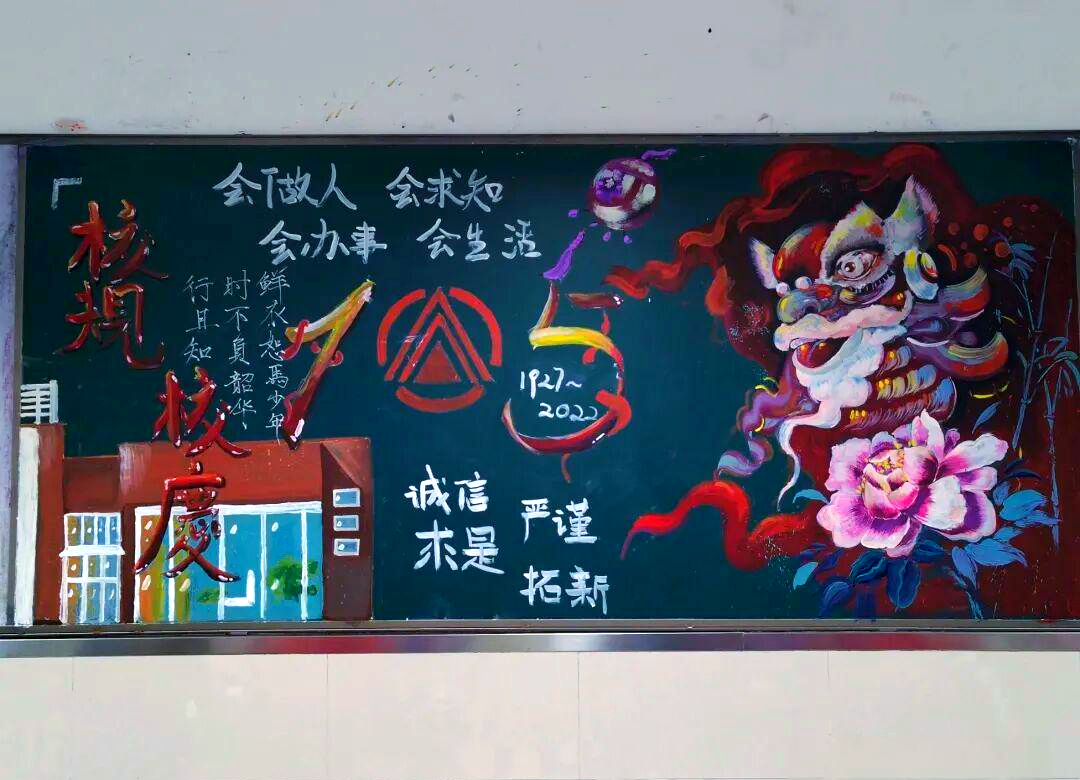 会做人 会求知
会办事 会生活
核规
校慶
鮮衣恕馬少年
时不負韶华、
行且知
105
1927~
2022
诚信
求是
严谨
拓新